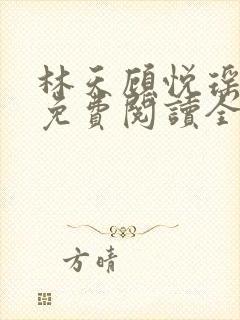 林天顾悦瑶
免費閱讀全
方晴